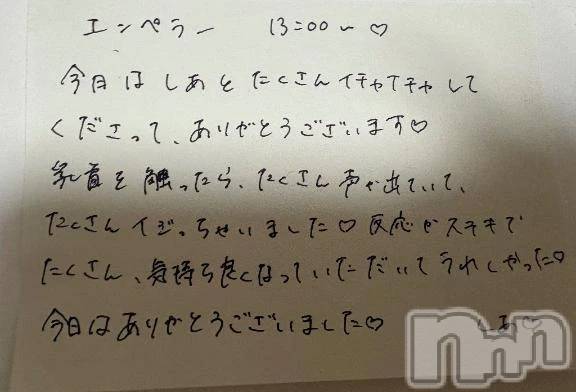 エンペラー 13:00～♡
今日は しあと たくさん イチャイチャ して
くださって、ありがとうございます♡
乳首を 触ったら、たくさん 声が出ていて、
たくさん イジっちゃいました♡ 反応がステキで
たくさん、気持ち良くなっていただいて うれしかった♡
今日は ありがとうございました♡ しあ♡
nnn